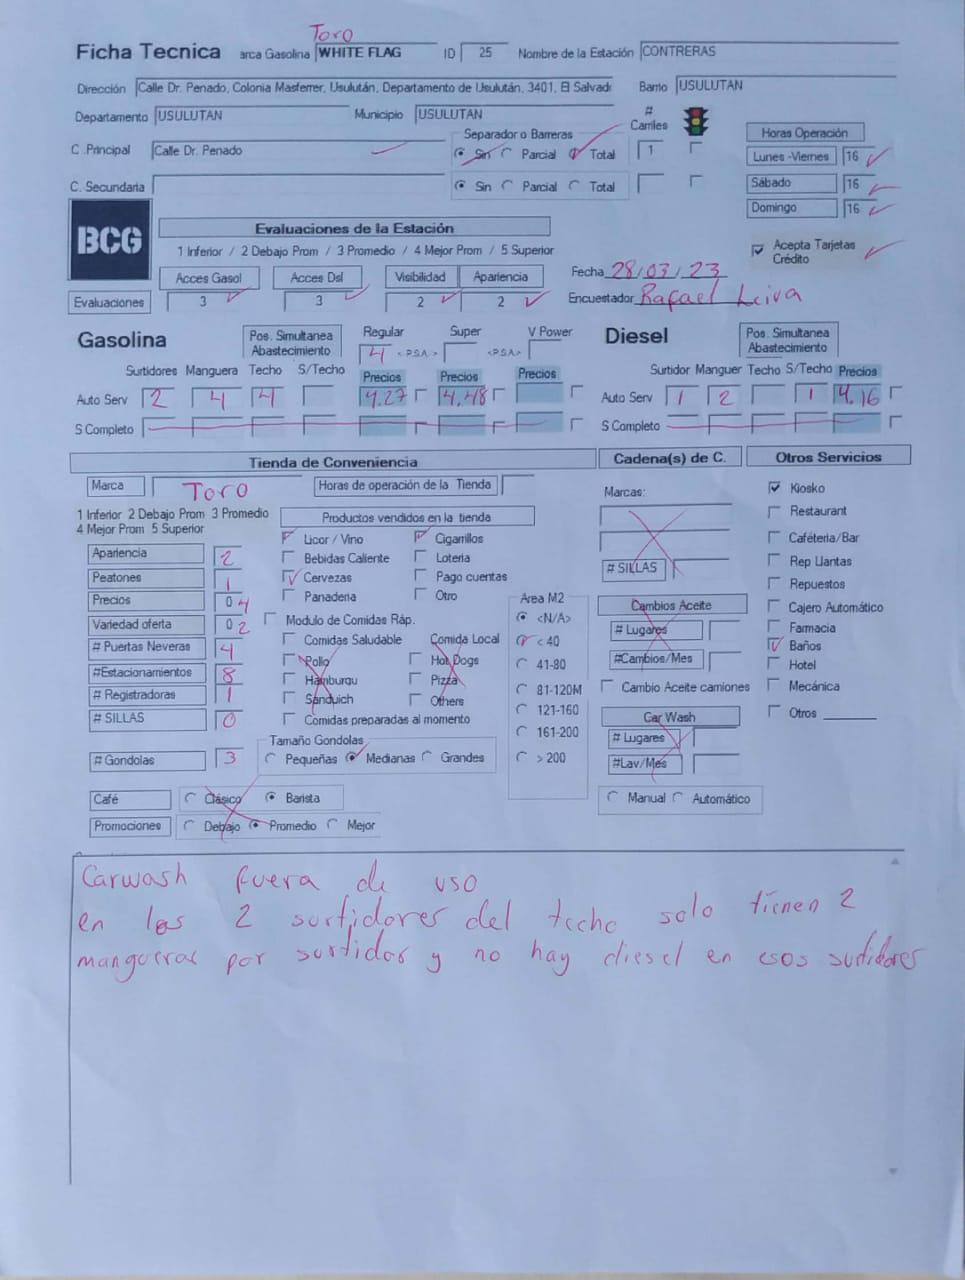 Toro
Ficha Tecnica arca Gasolina WHITE FLAG ID 25 Nombre de la Estación CONTRERAS
Dirección Calle Dr. Penado, Colonia Masferrer, Usulután, Departamento de Usulután, 3401, El Salvad Barrio USULUTAN
Departamento USULUTAN Municipio USULUTAN # Carriles
C .Principal Calle Dr. Penado Separador o Barreras Sin Parcial Total 1
C. Secundaria Sin Parcial Total
Horas Operación
Lunes -Viernes 16
Sábado 16
Domingo 16
BCG
Evaluaciones de la Estación
1 Inferior / 2 Debajo Prom / 3 Promedio / 4 Mejor Prom / 5 Superior
Acepta Tarjetas Crédito
Acces Gasol Acces Dsl Visibilidad Apariencia
Evaluaciones 3 3 2 2
Fecha 28/03/23
Encuestador Rafael Leiva
Gasolina Pos. Simultanea Abastecimiento Regular Super V Power
4 <P.S.A> <P.S.A>
Surtidores Manguera Techo S/Techo Precios Precios Precios
Auto Serv 2 4 4 4.27 4.48
S Completo
Diesel Pos. Simultanea Abastecimiento
Surtidor Manguer Techo S/Techo Precios
Auto Serv 1 2 1 4.16
S Completo
Tienda de Conveniencia
Marca Toro Horas de operación de la Tienda
1 Inferior 2 Debajo Prom 3 Promedio
4 Mejor Prom 5 Superior
Apariencia 2
Peatones 1
Precios 0 4
Variedad oferta 0 2
# Puertas Neveras 4
#Estacionamientos 8
# Registradoras 1
# SILLAS 0
# Gondolas 3
Productos vendidos en la tienda
Licor / Vino Cigarrillos
Bebidas Caliente Loteria
Cervezas Pago cuentas
Panaderia Otro
Modulo de Comidas Ráp.
Comidas Saludable Comida Local
Pollo Hot Dogs
Hamburqu Pizza
Sanduich Others
Comidas preparadas al momento
Tamaño Gondolas
Pequeñas Medianas Grandes
Café Clásico Barista
Promociones Debajo Promedio Mejor
Area M2
<N/A>
< 40
41-80
81-120M
121-160
161-200
> 200
Cadena(s) de C.
Marcas:
# SILLAS
Cambios Aceite
# Lugares
#Cambios/Mes
Cambio Aceite camiones
Car Wash
# Lugares
#Lav/Mes
Manual Automático
Otros Servicios
Kiosko
Restaurant
Cafeteria/Bar
Rep Llantas
Repuestos
Cajero Automático
Farmacia
Baños
Hotel
Mecánica
Otros
Carwash fuera de uso
en los 2 surtidores del techo solo tienen 2
mangueras por surtidor y no hay diesel en esos surtidores